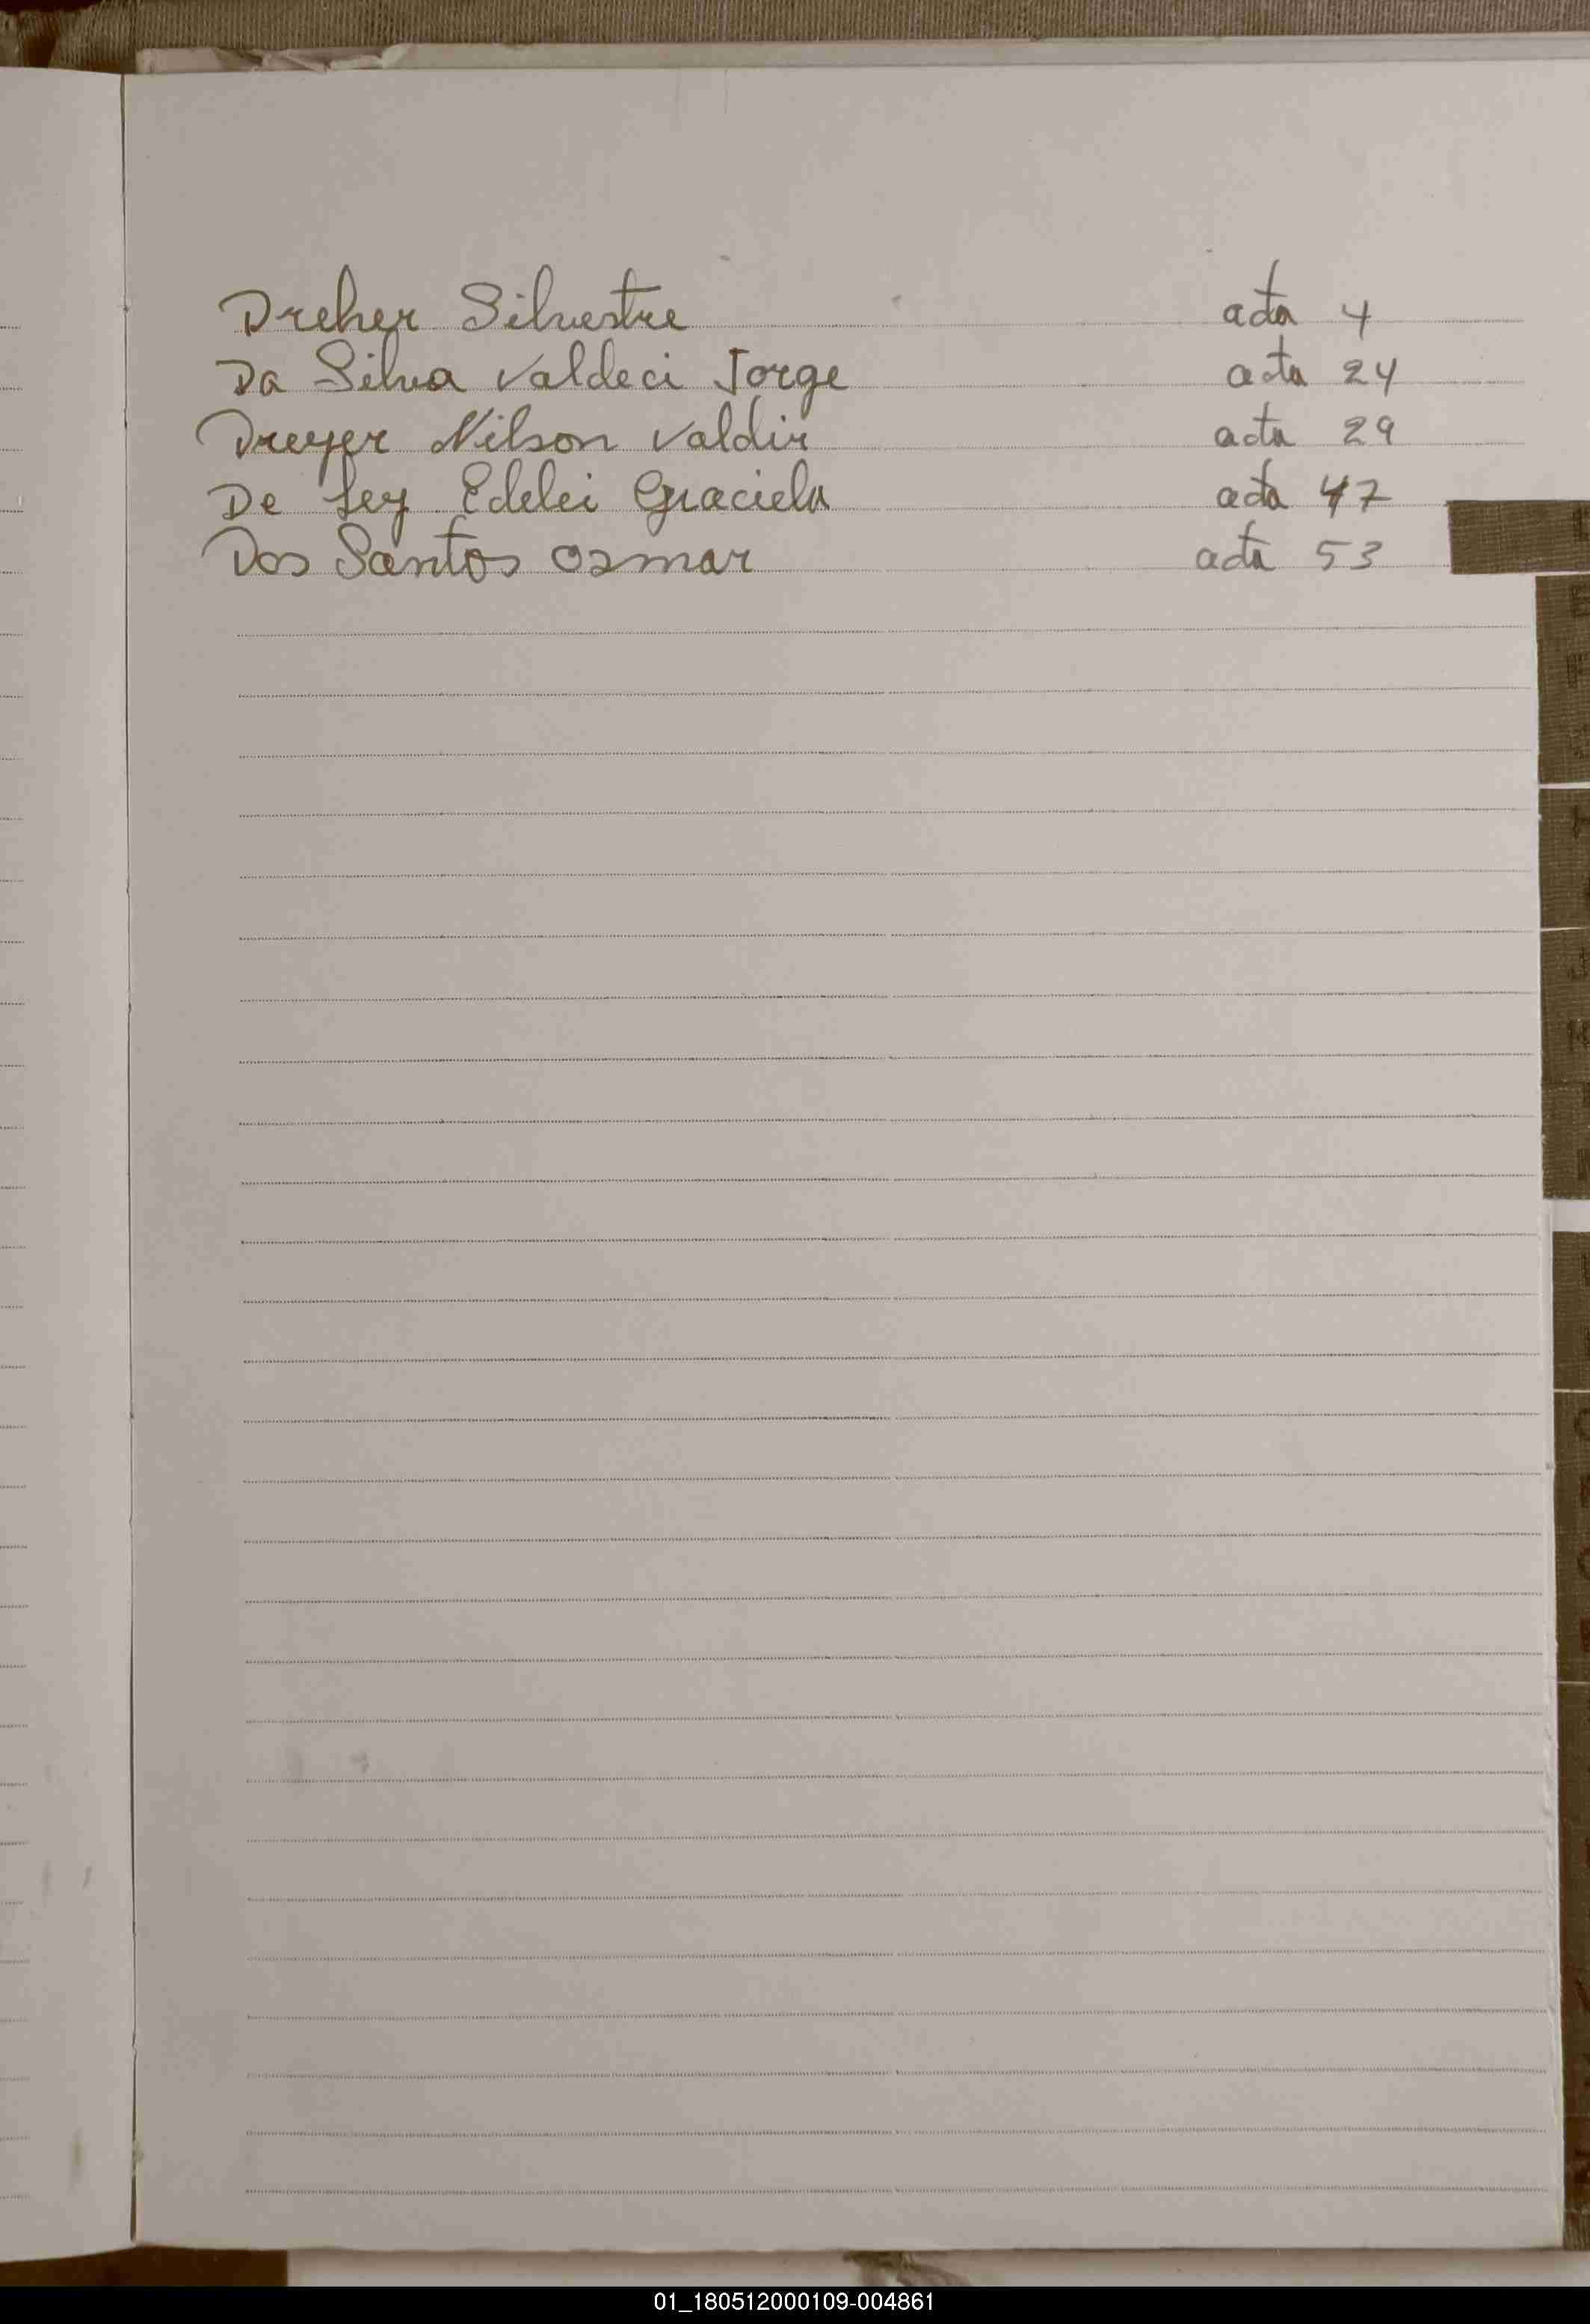 Dreher Silvestre acta 4
Da Silva Valdeci Jorge acta 24
Dreyer Nilson Valdir acta 29
De Ley Edelei Graciela acta 47
Dos Santos Osmar acta 53
01_180512000109-004861